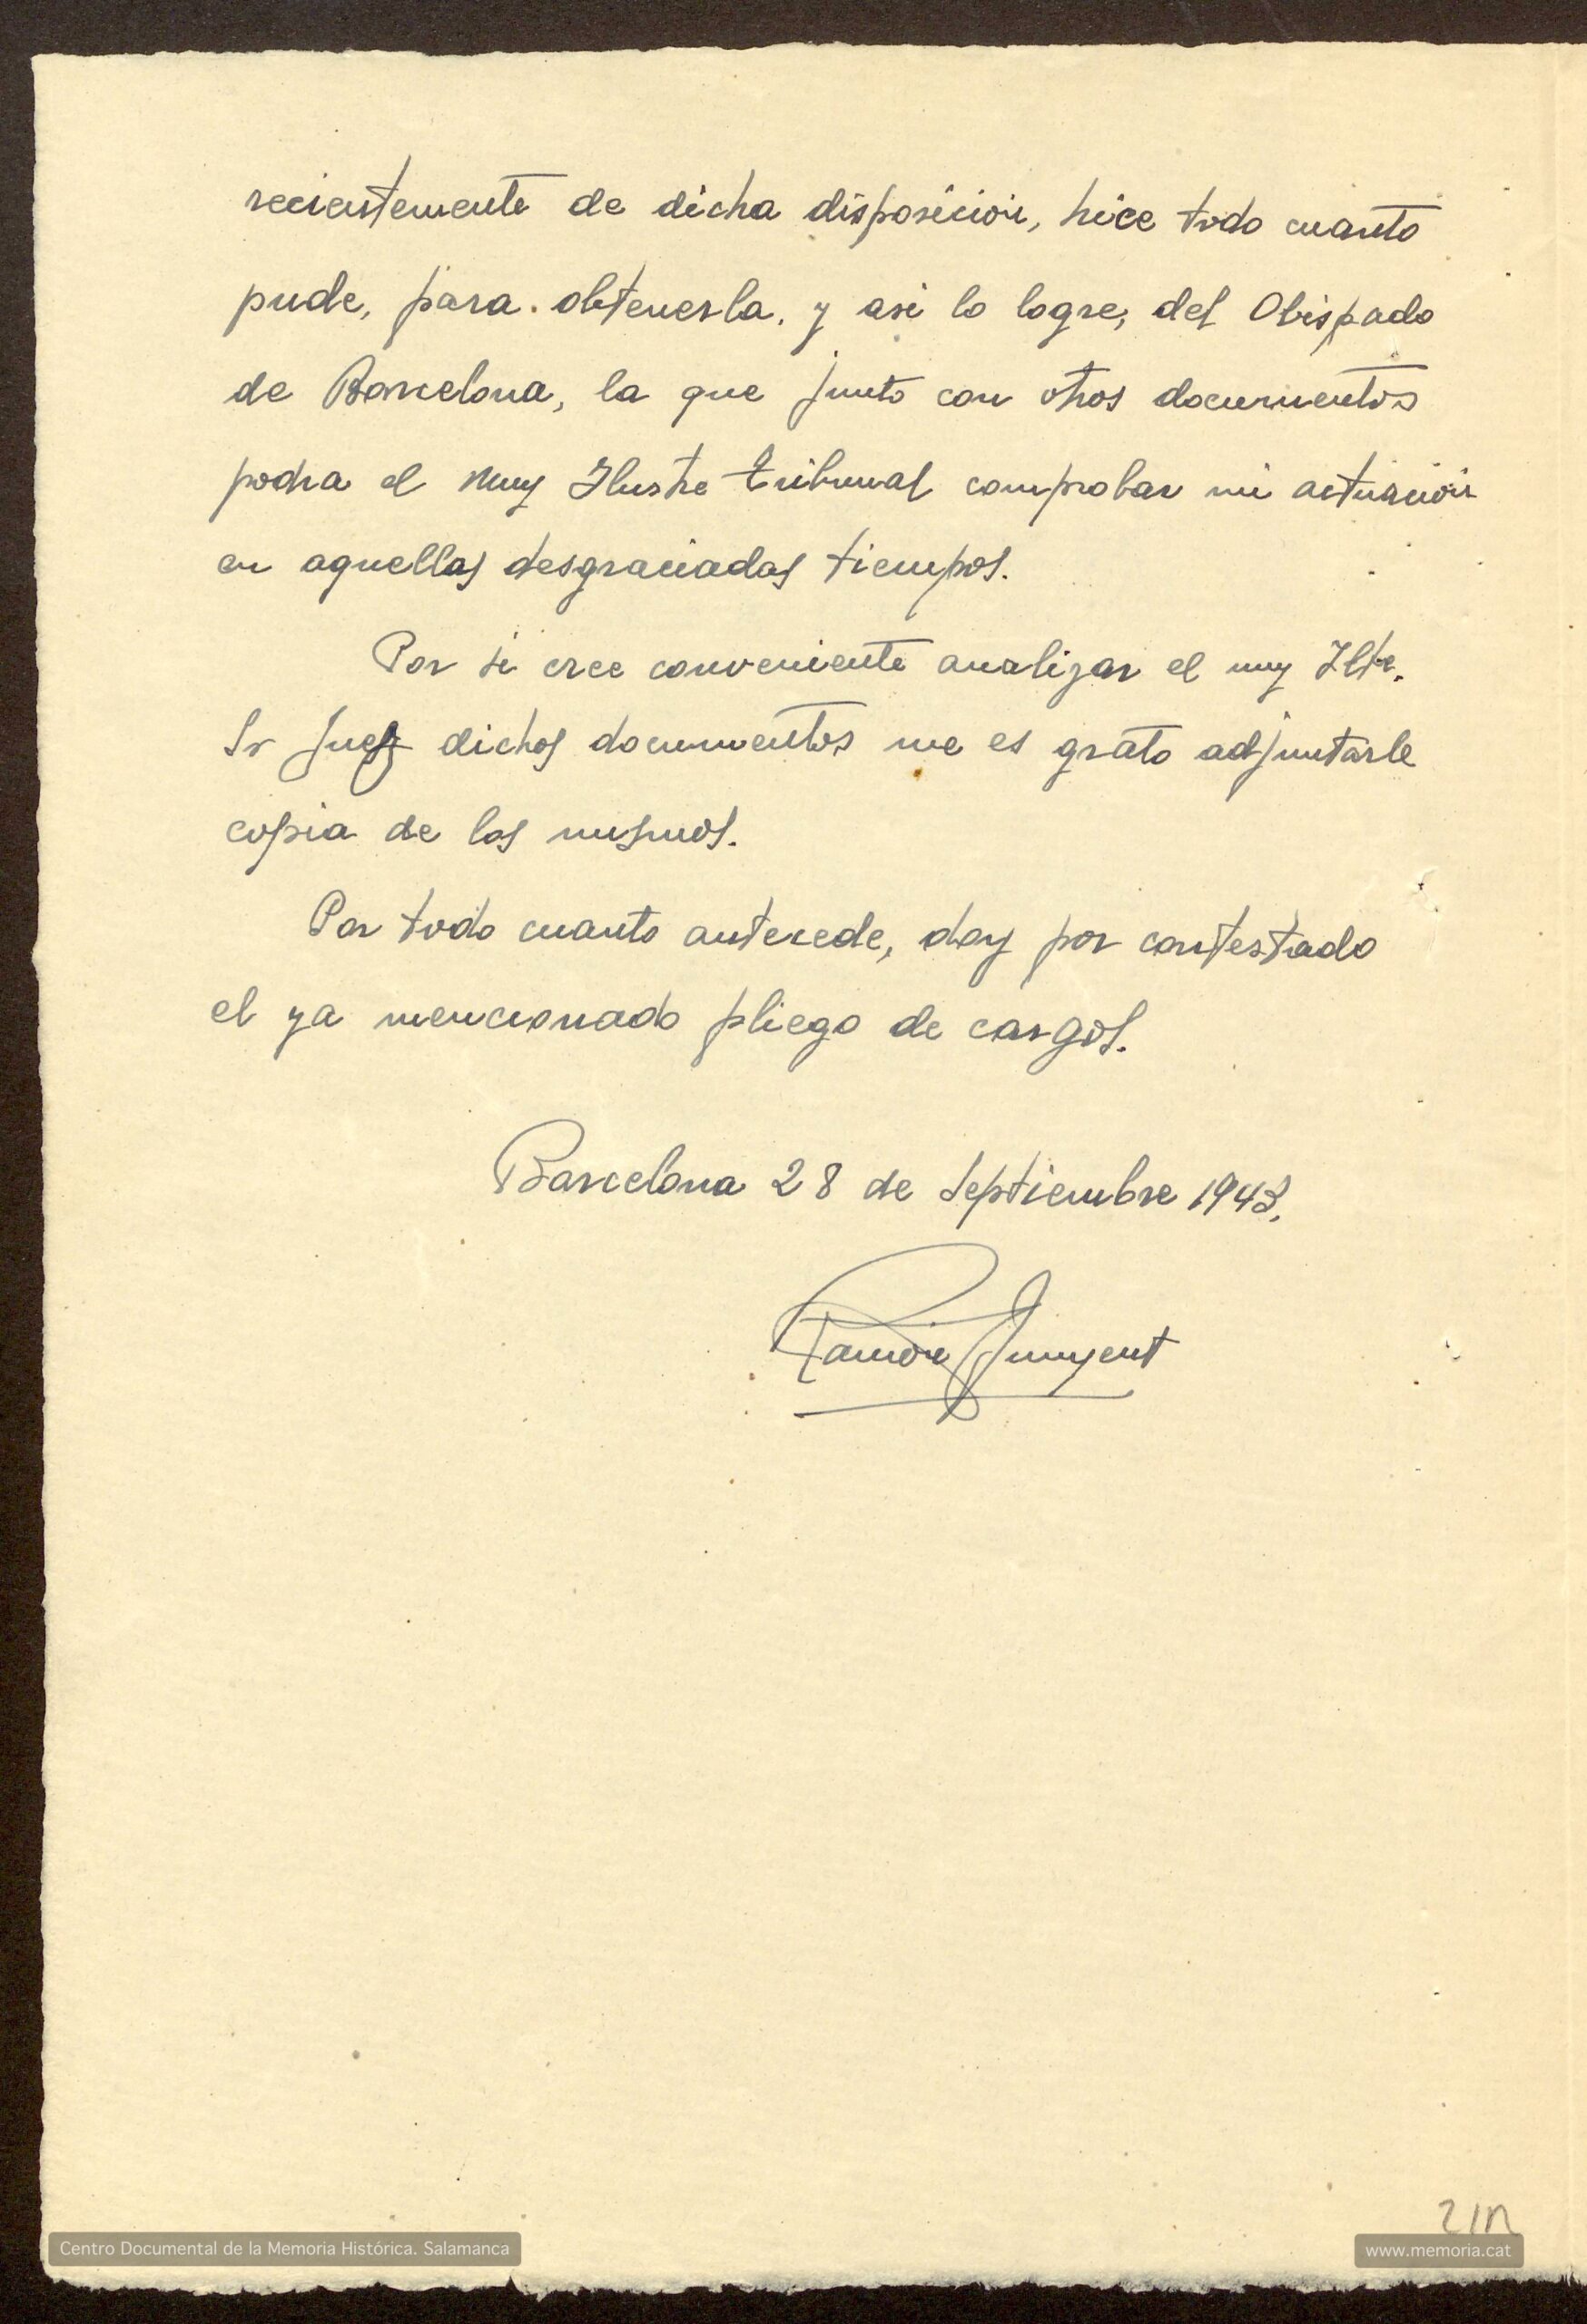 recientemente de dicha disposición, hice todo cuanto
pude, para. obtenerla, y asi lo logre, del Obispado
de Barcelona, la que junto con otros documentos
podra el muy Ilustre tribunal comprobar mi actuación
en aquellas desgraciadas tiempos.
Por si cree conveniente analizar el muy Iltre.
Sr Juez dichos documentos me es grato adjuntarle
copia de los mismos.
Por todo cuanto antecede, doy por contestado
el ya mencionado pliego de cargos.
Barcelona 28 de Septiembre 1943.
Ramón Junyent
Centro Documental de la Memoria Histórica. Salamanca
www.memoria.cat